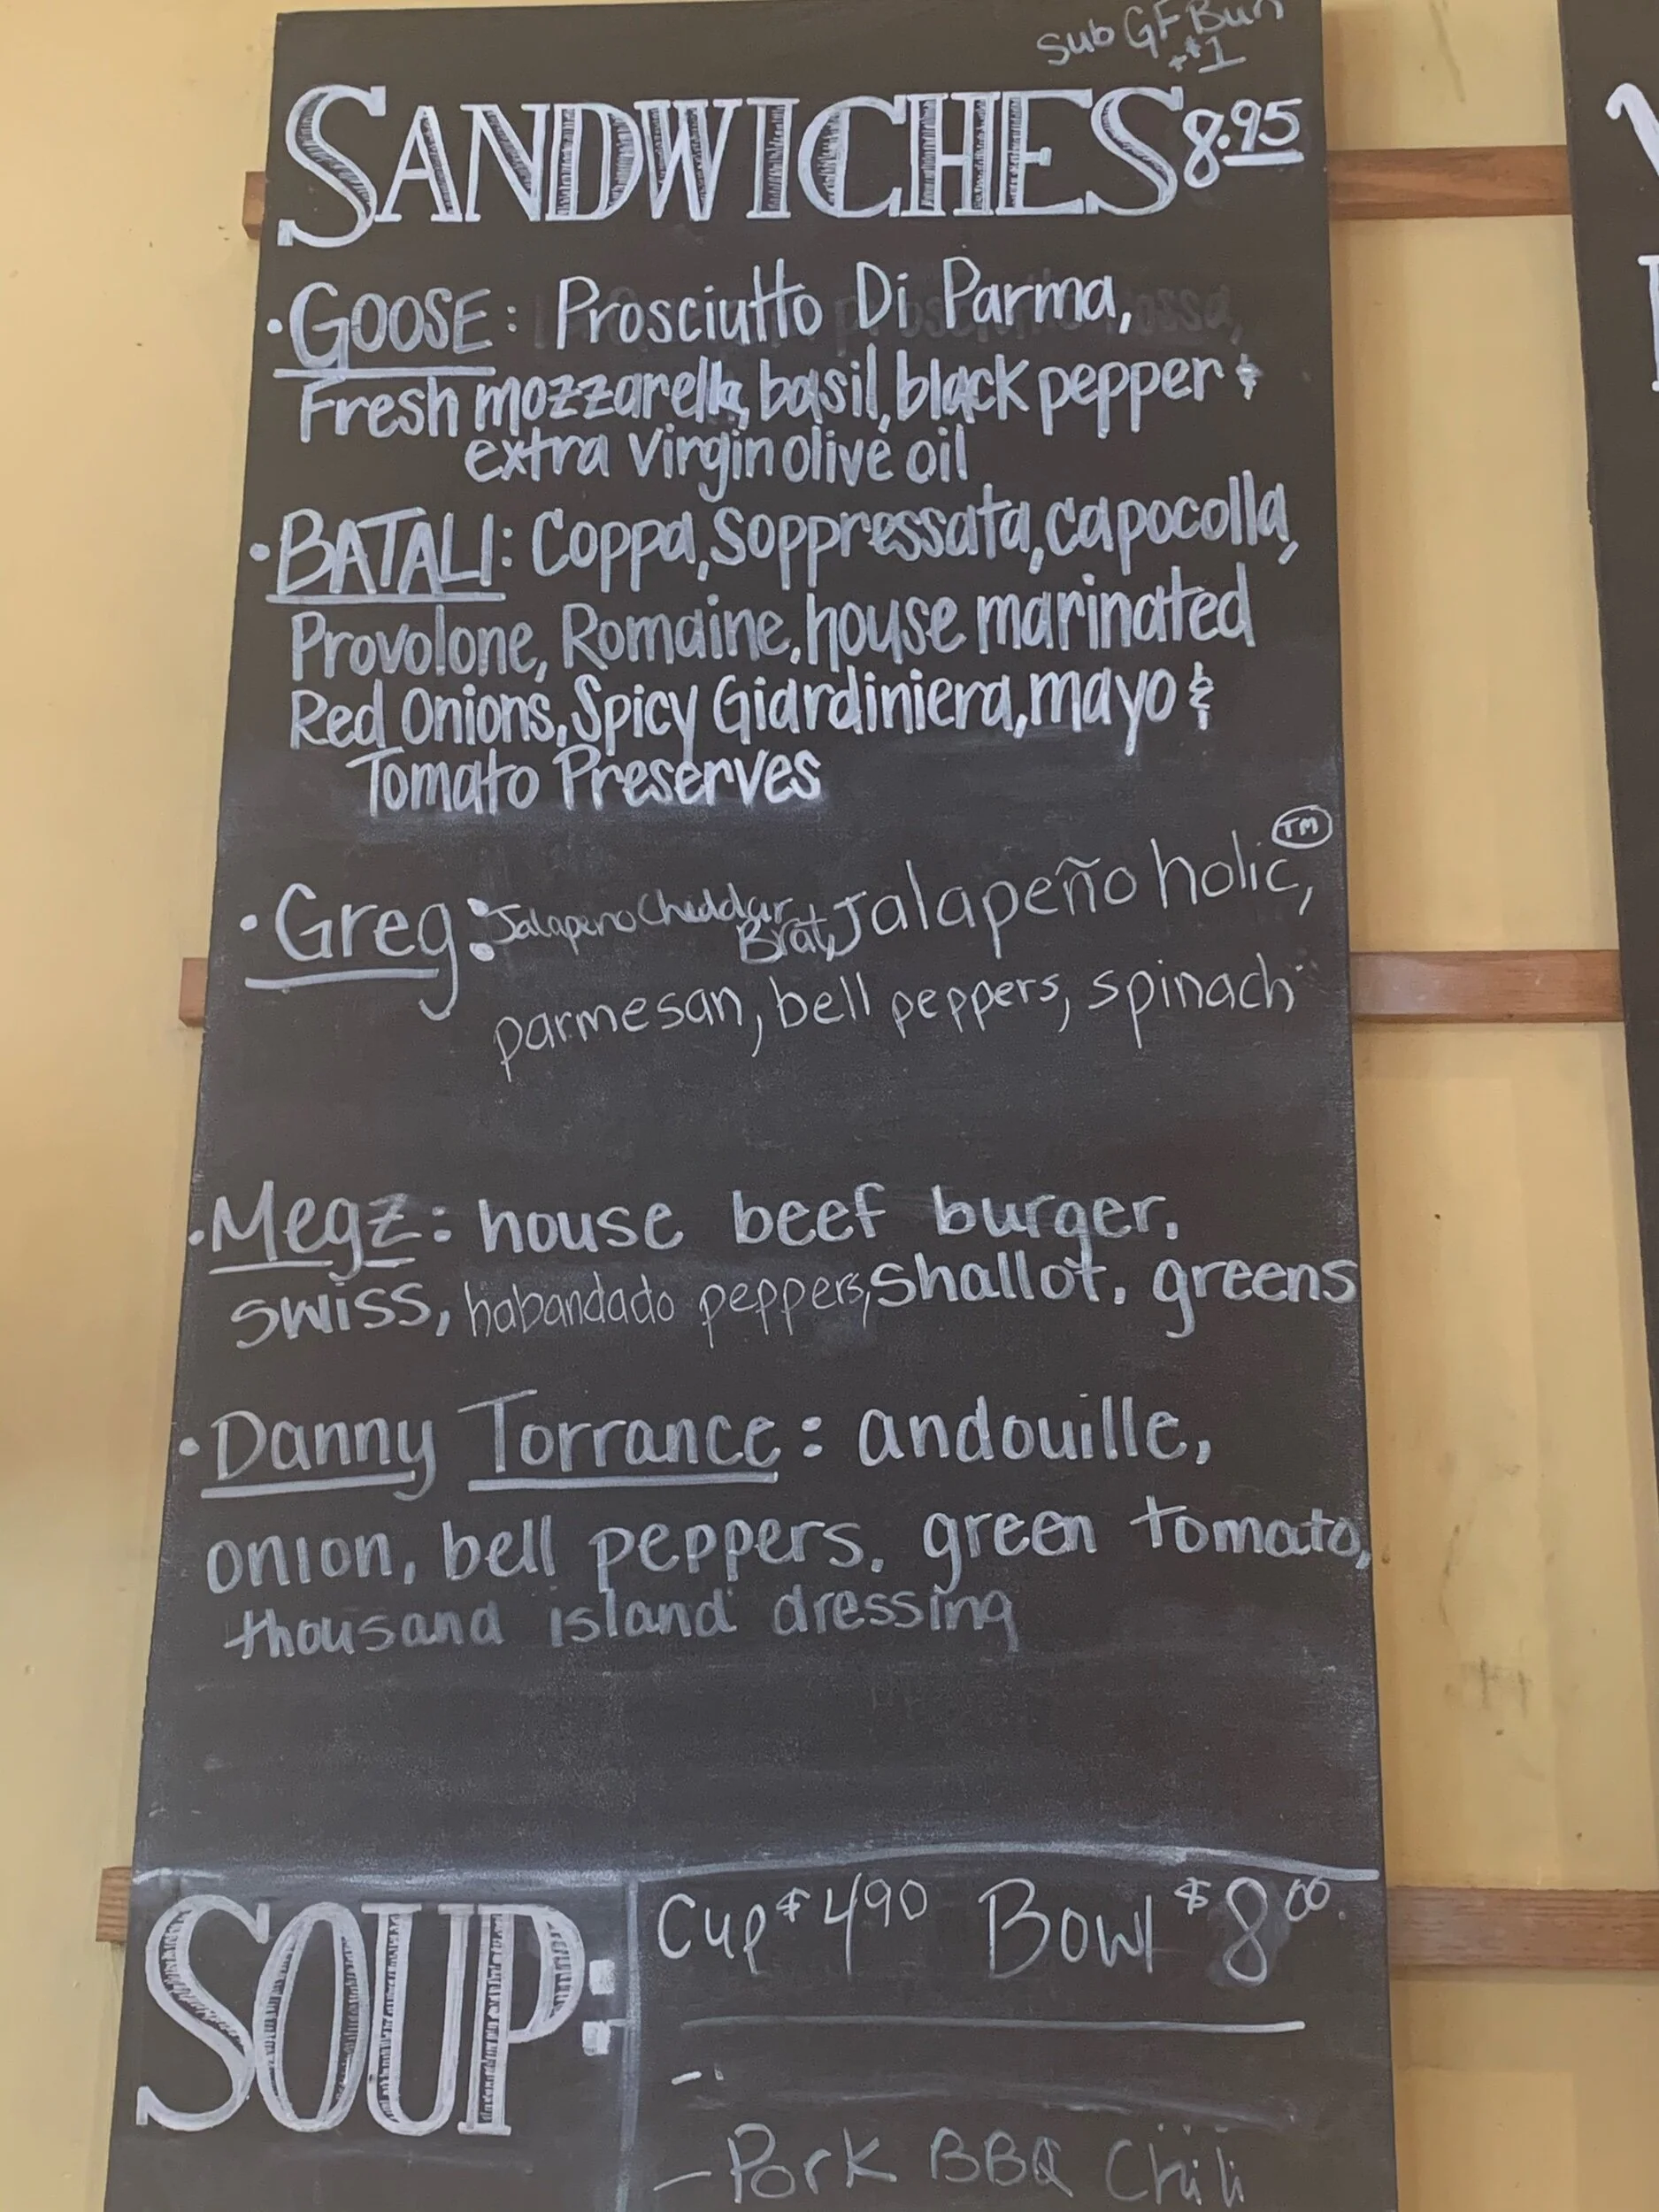 Sub GF Bun
+$1
SANDWICHES 8.95
• GOOSE: Prosciutto Di Parma,
Fresh mozzarella, basil, black pepper &
extra virgin olive oil
• BATALI: Coppa, Soppressata, capocolla,
Provolone, Romaine, house marinated
Red Onions, Spicy Giardiniera, mayo &
Tomato Preserves
• Greg: Jalapeno Cheddar Brat, Jalapeño holic, TM
parmesan, bell peppers, spinach
• Megz: house beef burger,
swiss, habandado peppers, shallot, greens
• Danny Torrance: andouille,
onion, bell peppers, green tomato,
thousand island dressing
SOUP: Cup $4.90 Bowl $8.00
-
- Pork BBQ Chili